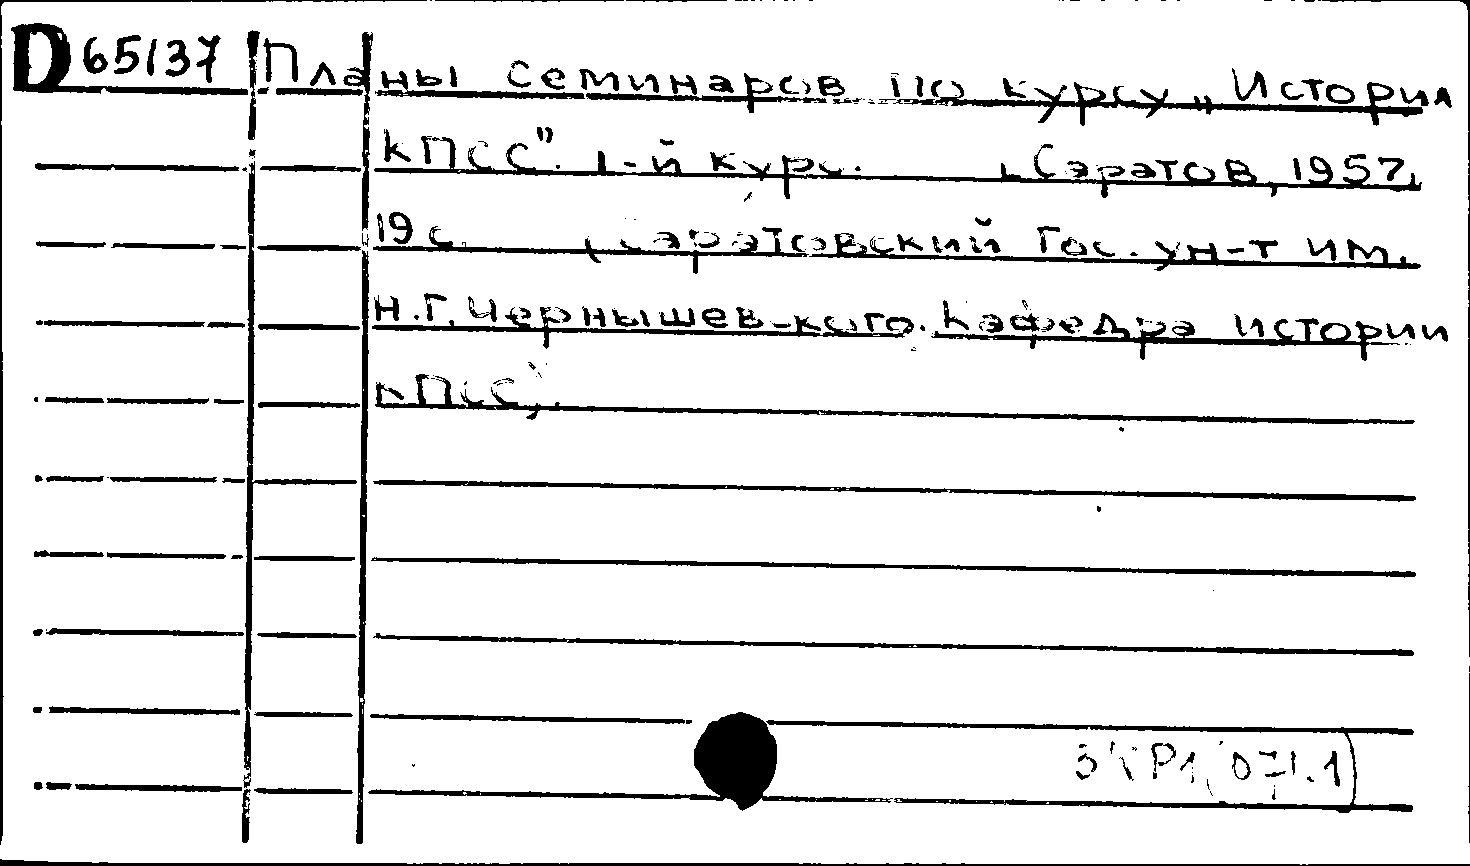 D 65137 Планы семинаров по курсу „История
КПСС". 1-й курс. Саратов, 1957.
19 с. (Саратовский Гос. ун-т им.
Н.Г. Чернышев-кого. Кафедра истории
КПСС).
3КP1(071.1)